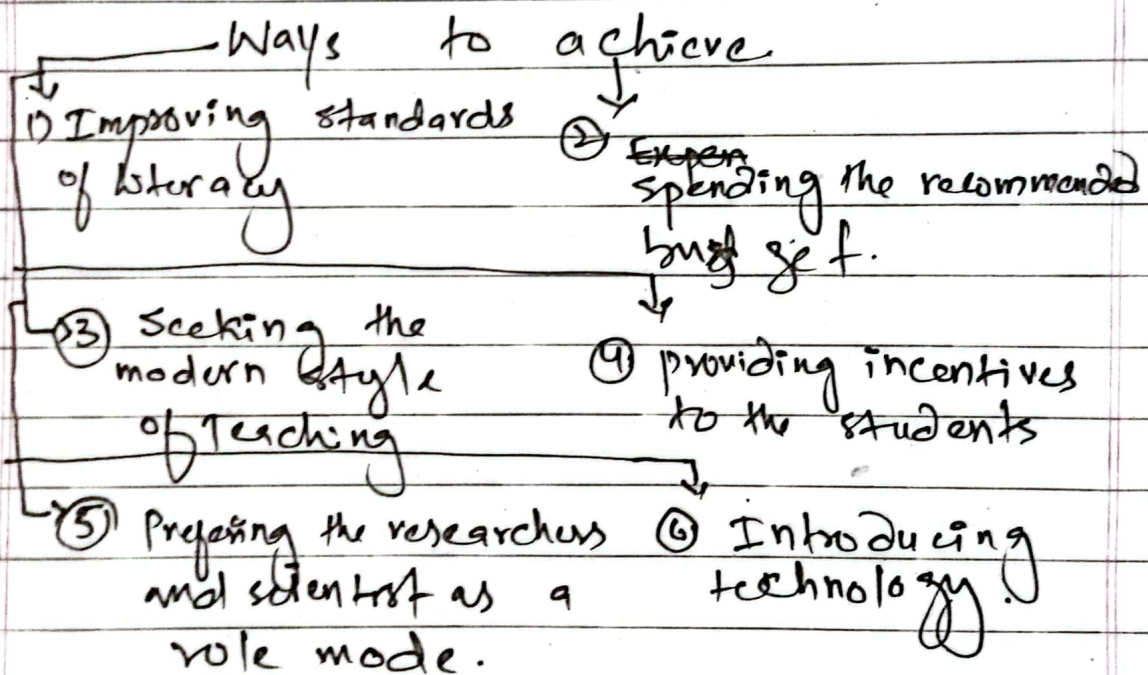 Ways to achieve
1) Improving standards
of literacy
② Expen
spending the recommended
budget.
③ Seeking the
modern style
of Teaching
④ providing incentives
to the students
⑤ Prefering the researchers
and scientist as a
role mode.
⑥ Introducing
technology.